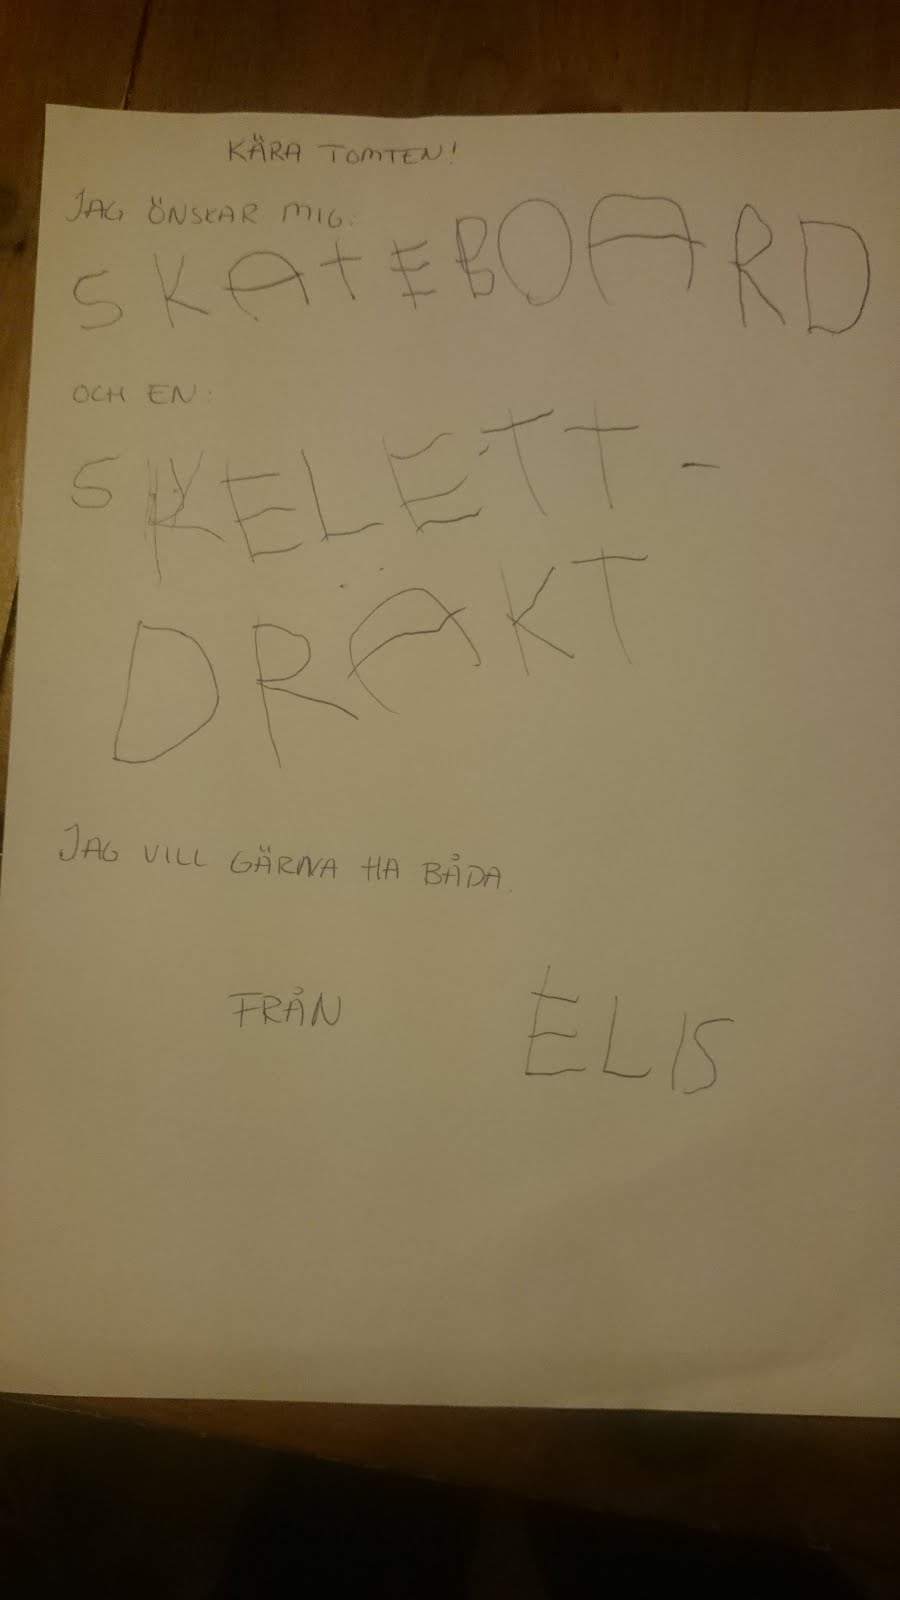 KÄRA TOMTEN!
JAG ÖNSKAR MIG:
SKATEBOARD
OCH EN:
SKELETT-
DRÄKT
JAG VILL GÄRNA HA BÅDA.
FRÅN ELIS